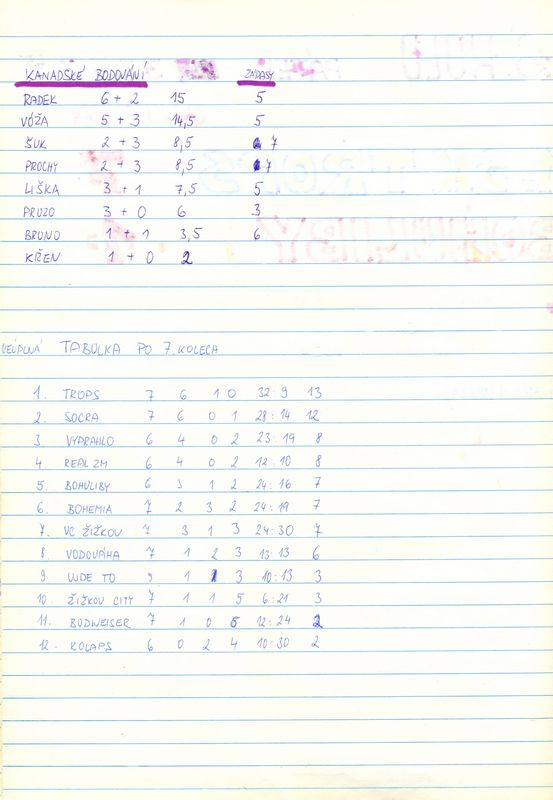 KANADSKÉ BODOVÁNÍ ZÁPASY
RADEK 6 + 2 15 5
VÓŽA 5 + 3 14,5 5
ŠUK 2 + 3 8,5 7
PROCHY 2 + 3 8,5 7
LIŠKA 3 + 1 7,5 5
PRUZO 3 + 0 6 3
BRUNO 1 + 1 3,5 6
KŘEN 1 + 0 2
NEÚPLNÁ TABULKA PO 7. KOLECH
1. TROPS 7 6 1 0 32:9 13
2. SOCRA 7 6 0 1 28:14 12
3. VYPRAHLO 6 4 0 2 23:19 8
4. REAL ZM 6 4 0 2 12:10 8
5. BOHULIBY 6 3 1 2 24:16 7
6. BOHEMIA 7 2 3 2 24:19 7
7. VC ŽIŽKOV 7 3 1 3 24:30 7
8. VODOVÁHA 7 1 2 3 13:13 6
9 UJDE TO 5 1 1 3 10:13 3
10. ŽIŽKOV CITY 7 1 1 5 6:21 3
11. BUDWEISER 7 1 0 6 12:24 2
12. KOLAPS 6 0 2 4 10:30 2